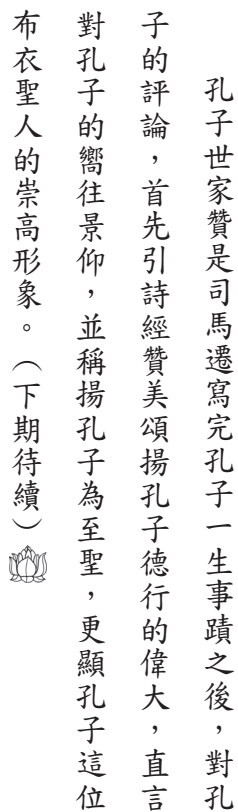 孔子世家贊是司馬遷寫完孔子一生事蹟之後，對孔
子的評論，首先引詩經贊美頌揚孔子德行的偉大，直言
對孔子的嚮往景仰，並稱揚孔子為至聖，更顯孔子這位
布衣聖人的崇高形象。（下期待續）